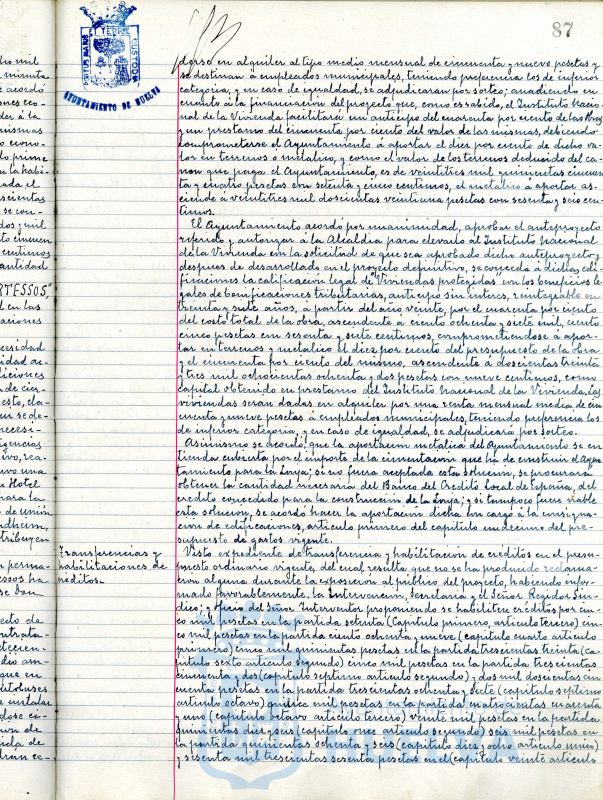 87
PORTUS MARIS ET TERRE CUSTODIA
AYUNTAMIENTO DE HUELVA
darse en alquiler al tipo medio mensual de cincuenta y nueve pesetas y
se destinan a empleados municipales, teniendo preferencia los de inferior
categoria, y en caso de igualdad, se adjudicaran por sorteo; añadiendo en
cuanto á la financiación del proyecto que, como es sabido, el Instituto Nacio-
nal de la Vivienda facilitará un anticipo del cuarenta por ciento de las obras
y un prestamo del cincuenta por ciento del valor de las mismas, debiendo
comprometerse el Ayuntamiento á aportar el diez por ciento de dicho va-
lor en terrenos o metalico, y como el valor de los terrenos deducido del ca-
non que paga el Ayuntamiento, es de veintitres mil quinientas cincuen-
ta y cuatro pesetas con setenta y cinco centimos, el metalico a aportar as-
ciende á veintitres mil doscientas veintiuna pesetas con sesenta y seis cen-
timos.
El Ayuntamiento acordó por unanimidad, aprobar el anteproyecto
referido y autorizar á la Alcaldia para elevarlo al Instituto Nacional
de la Vivienda con la solicitud de que sea aprobado dicho anteproyecto y
despues de desarrollado en el proyecto definitivo, se conceda á dichas edi-
ficaciones la calificación legal de Viviendas protegidas con los beneficios le-
gales de bonificaciones tributarias, anticipo sin interes, reintegrable en
treinta y siete años, á partir del año veinte, por el cuarenta por ciento
del costo total de la obra, ascendente á ciento ochenta y siete mil, ciento
cinco pesetas con sesenta y siete centimos, comprometiendose á apor-
tar en terrenos o metalico el diez por ciento del presupuesto de la obra
y el cincuenta por ciento del mismo, ascendente á doscientas treinta
y tres mil ochocientas ochenta y dos pesetas con nueve centimos, como
capital obtenido en prestamo del Instituto Nacional de la Vivienda. Las
viviendas serán dadas en alquiler por una renta mensual media de cin-
cuenta y nueve pesetas á empleados municipales, teniendo preferencia los
de inferior categoria, y en caso de igualdad, se adjudicará por sorteo.
Asimismo se acordó, que la aportación metalica del Ayuntamiento se en-
tienda cubierta por el importe de la cimentación que ha de construir el Ayun-
tamiento para la Lonja; si no fuera aceptada esta solución, se procurará
obtener la cantidad necesaria del Banco del Credito Local de España, del
credito concedido para la construcción de la Lonja; y si tampoco fuere viable
esta solución, se acordó hacer la aportación dicha con cargo á la consigna-
ción de edificaciones, articulo primero del capitulo undecimo del pre-
supuesto de gastos vigente.
Transferencias y
habilitaciones de
créditos.-
Visto expediente de transferencia y habilitación de créditos en el presu-
puesto ordinario vigente, del cual resulta que no se ha producido reclama-
ción alguna durante la exposición al público del proyecto, habiendo infor-
mado favorablemente, la Intervención, Secretaria y el Señor Regidor Sin-
dico; y oficio del Señor Interventor proponiendo se habiliten créditos por cin-
co mil pesetas en la partida setenta (capitulo primero, articulo tercero) cin-
co mil pesetas en la partida ciento ochenta y nueve (capitulo cuarto articulo
primero) cinco mil quinientas pesetas en la partida trescientas treinta (ca-
pitulo sexto articulo segundo) cinco mil pesetas en la partida trescientas
cincuenta y dos (capitulo septimo articulo segundo) y dos mil doscientas cin-
cuenta pesetas en la partida trescientas ochenta y siete (capitulo septimo
articulo octavo) quince mil pesetas en la partida cuatrocientas cuarenta
y una (capitulo octavo articulo tercero) veinte mil pesetas en la partida
quinientas diez y seis (capitulo once articulo segundo) seis mil pesetas en
la partida quinientas ochenta y seis (capitulo diez y ocho articulo unico)
y sesenta mil trescientas sesenta pesetas en el (capitulo veinte articulo